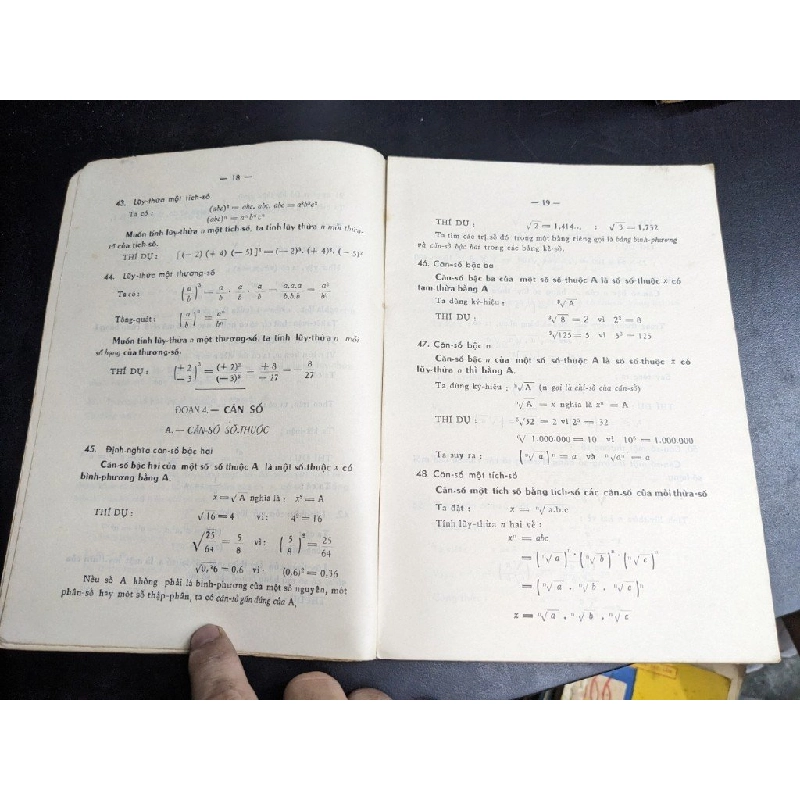 — 18 —
43. Lũy-thừa một tích-số
Ta có : (abc)² = abc. abc. abc = a³b³c³
(abc)ⁿ = aⁿbⁿcⁿ
Muốn tính lũy-thừa n một tích-số, ta tính lũy thừa n mỗi thừa
số của tích-số.
THÍ DỤ : [(— 2) (+ 4) (— 5)]³ = (— 2)³. (+ 4)³. (— 5)³
44. Lũy-thừa một thương-số
Ta có : (a/b)³ = a/b . a/b . a/b = a.a.a/b.b.b = a³/b³
Tổng-quát : (a/b)ⁿ = aⁿ/bⁿ
Muốn tính lũy-thừa n một thương-số, ta tính lũy-thừa n mỗi
số hạng của thương-số.
THÍ DỤ : (+ 2/— 3)³ = (+ 2)³/(— 3)³ = + 8/— 27 = — 8/27
ĐOẠN 4. — CĂN SỐ
A. — CĂN-SỐ SỐ-THUỘC
45. Định nghĩa căn-số bậc hai
Căn-số bậc hai của một số số thuộc A là một số-thuộc x có
bình-phương bằng A.
x = √A nghĩa là : x² = A
THÍ DỤ : √16 = 4 vì : 4² = 16
√25/64 = 5/8 vì : (5/8)² = 25/64
√0,36 = 0,6 vì (0,6)² = 0,36
Nếu số A không phải là bình-phương của một số nguyên, một
phân-số hay một số thập-phân, ta có căn-số gần đúng của A.
— 19 —
THÍ DỤ : √2 = 1,414... ; √3 = 1,732
Ta tìm các trị số đó trong một bảng riêng gọi là bảng bình-phương
và căn-số bậc hai trong các bảng kê-số.
46. Căn-số bậc ba
Căn-số bậc ba của một số số-thuộc A là số số-thuộc x có
tam thừa bằng A
Ta dùng ký-hiệu : ³√A
THÍ DỤ : ³√8 = 2 vì 2³ = 8
³√125 = 5 vì 5³ = 125
47. Căn-số bậc n
Căn-số bậc n của một số số-thuộc A là số số-thuộc x có
lũy-thừa n thì bằng A.
Ta dùng ký-hiệu : ⁿ√A (n gọi là chỉ-số của căn-số)
ⁿ√A = x nghĩa là xⁿ = A
THÍ DỤ : ⁵√32 = 2 vì 2⁵ = 32
⁶√1.000.000 = 10 vì 10⁶ = 1.000.000
Ta suy ra : (ⁿ√a)ⁿ = a và ⁿ√aⁿ = a
48. Căn-số một tích-số
Căn-số một tích số bằng tích-số các căn-số của mỗi thừa-số
Ta đặt : x = ⁿ√a.b.c
Tính lũy-thừa n hai vế :
xⁿ = abc
= (ⁿ√a)ⁿ . (ⁿ√b)ⁿ . (ⁿ√c)ⁿ
= (ⁿ√a . ⁿ√b . ⁿ√c)ⁿ
x = ⁿ√a . ⁿ√b . ⁿ√c